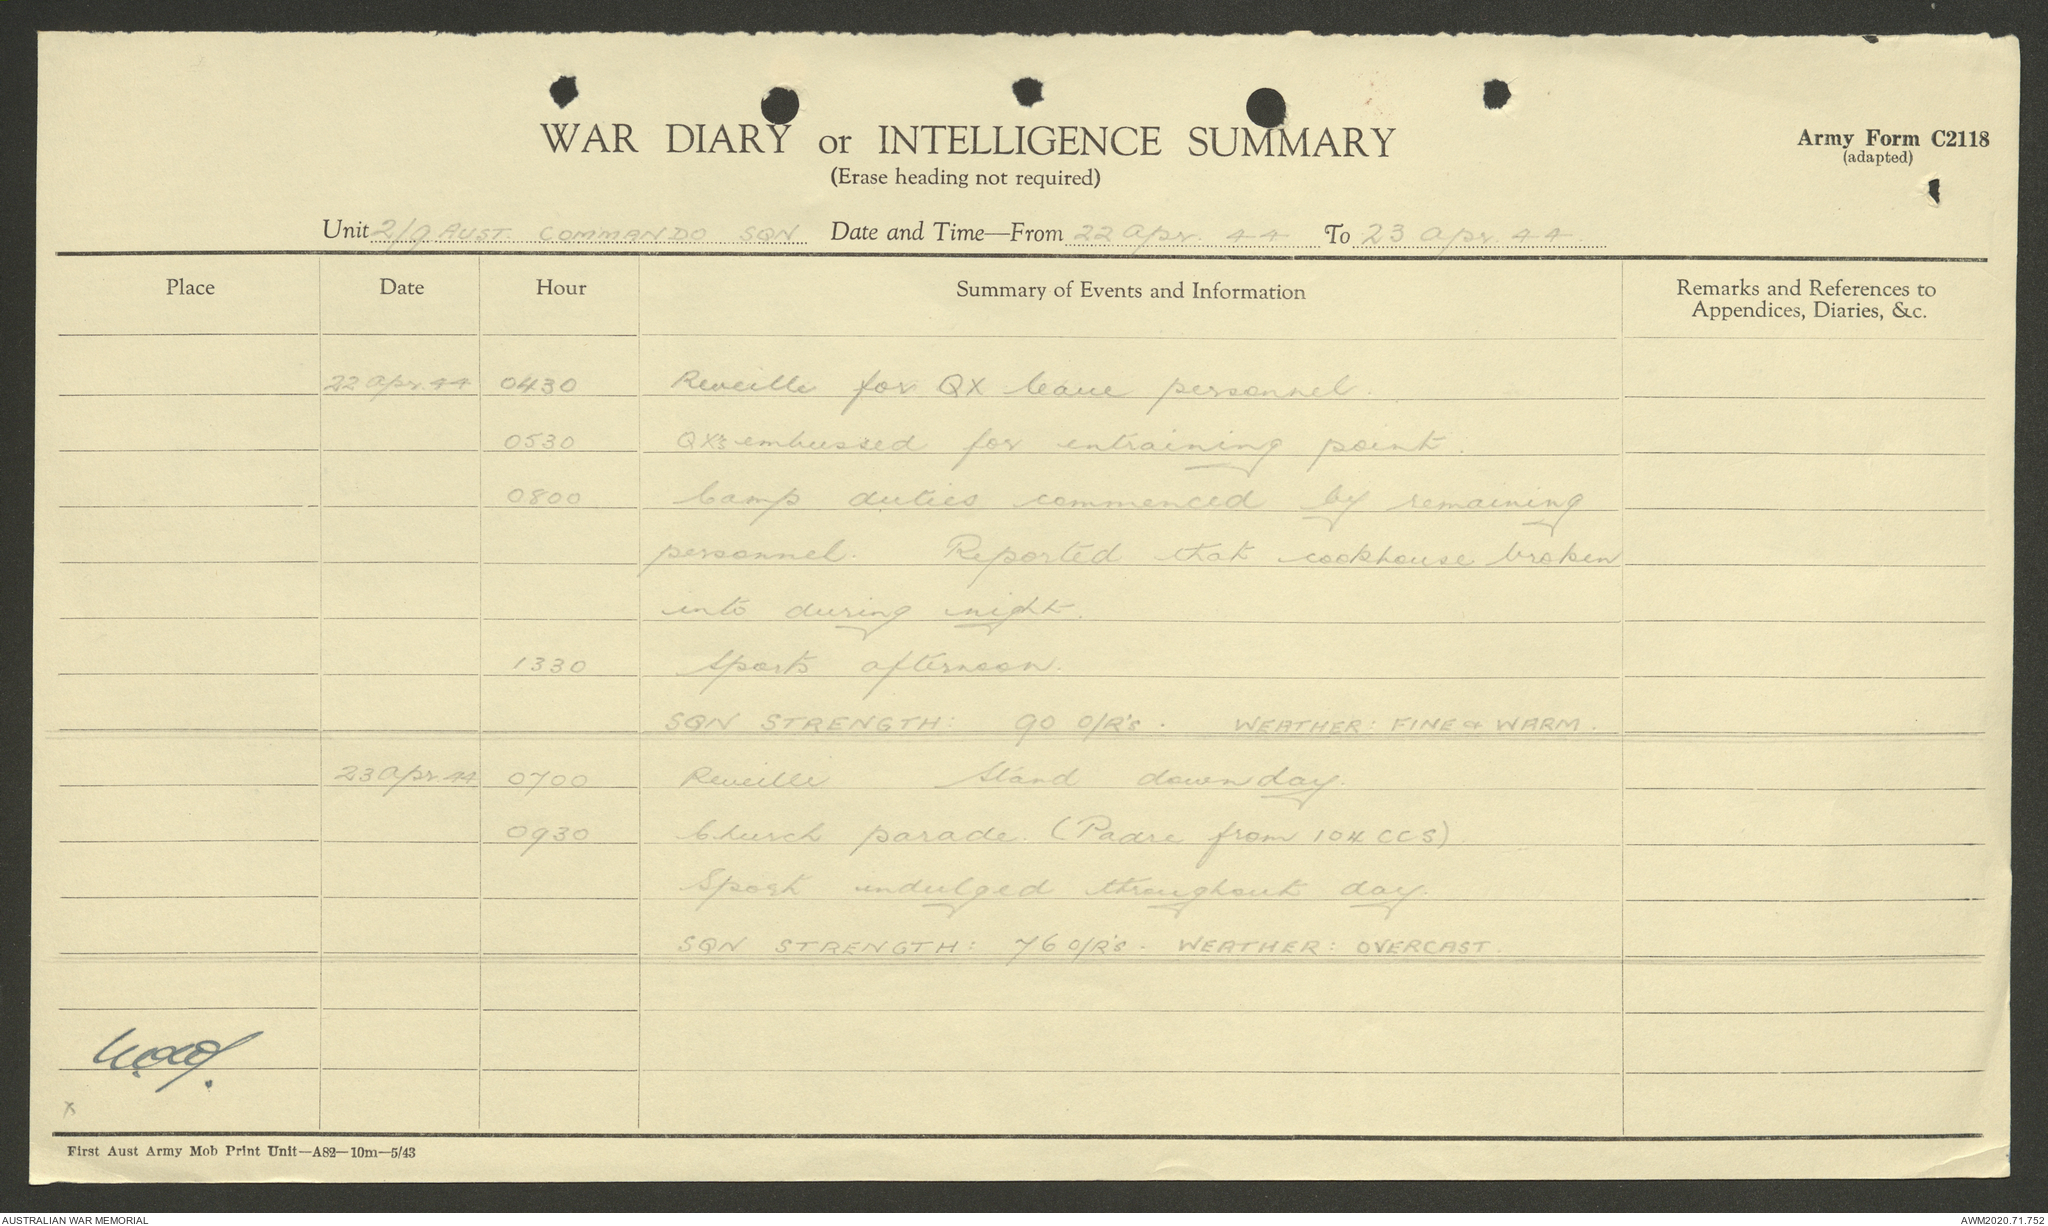 WAR DIARY or INTELLIGENCE SUMMARY
(Erase heading not required)
Army Form C2118
(adapted)
Unit 2/9 AUST. COMMANDO SQN Date and Time—From 22 Apr. 44 To 23 Apr. 44
Place Date Hour Summary of Events and Information Remarks and References to
Appendices, Diaries, &c.
22 Apr. 44 0430 Reveille for QX leave personnel.
0530 QX's embussed for entraining point.
0800 Camp duties commenced by remaining
personnel. Reported that cookhouse broken
into during night.
1330 Sports afternoon.
SQN STRENGTH: 90 O/R's. WEATHER: FINE & WARM.
23 Apr. 44 0700 Reveille Stand down day.
0930 Church parade. (Padre from 104 CCS).
Sport indulged throughout day.
SQN STRENGTH: 76 O/R's. WEATHER: OVERCAST.
x
First Aust Army Mob Print Unit—A82—10m—5/43
AUSTRALIAN WAR MEMORIAL
AWM2020.71.752